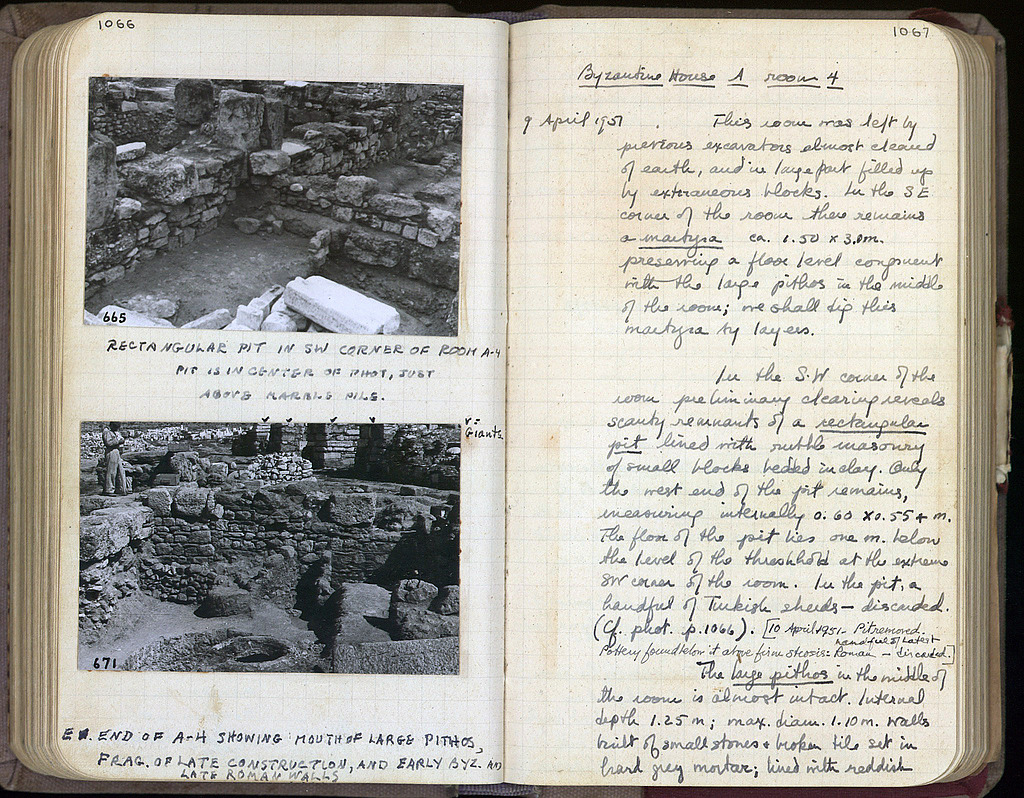 1066
665
RECTANGULAR PIT IN SW CORNER OF ROOM A-4
PIT IS IN CENTER OF PHOT, JUST
ABOVE MARBLE PILE.
V=
Giants
671
END OF A-4 SHOWING MOUTH OF LARGE PITHOS,
FRAG. OF LATE CONSTRUCTION, AND EARLY BYZ. AND
LATE ROMAN WALLS
1067
Byzantine House A room 4
9 April 1951. This room was left by
previous excavators almost cleared
of earth, and in large part filled up
by extraneous blocks. In the SE
corner of the room there remains
a martyra ca. 1.50 x 3.0m.
preserving a floor level congruent
with the large pithos in the middle
of the room; we shall dig this
martyra by layers.
In the S.W corner of the
room preliminary clearing reveals
scanty remnants of a rectangular
pit lined with rubble masonry
of small blocks bedded in clay. Only
the west end of the pit remains,
measuring internally 0.60 x 0.55+ m.
The floor of the pit lies one m. below
the level of the threshhold at the extreme
SW corner of the room. In the pit, a
handful of Turkish sherds — discarded.
(Cf. phot. p.1066). [10 April 1951 - Pit removed.
handful of latest
Pottery found below it above firm stosis: Roman — discarded.]
The large pithos in the middle of
the room is almost intact. Internal
depth 1.25 m; max. diam. 1.10 m. Walls
built of small stones + broken tile set in
hard grey mortar; lined with reddish